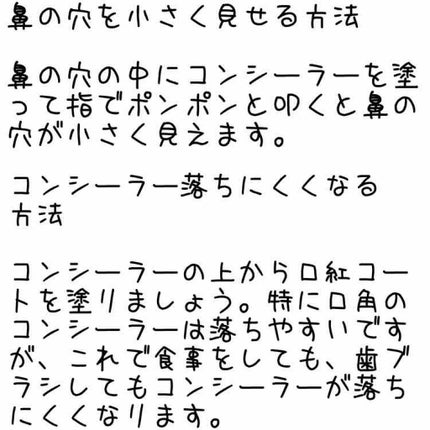 鼻の穴を小さく見せる方法
鼻の穴の中にコンシーラーを塗
って指でポンポンと叩くと鼻の
穴が小さく見えます。
コンシーラー落ちにくくなる
方法
コンシーラーの上から口紅コー
トを塗りましょう。特に口角の
コンシーラーは落ちやすいです
が、これで食事をしても、歯ブ
ラシしてもコンシーラーが落ち
にくくなります。